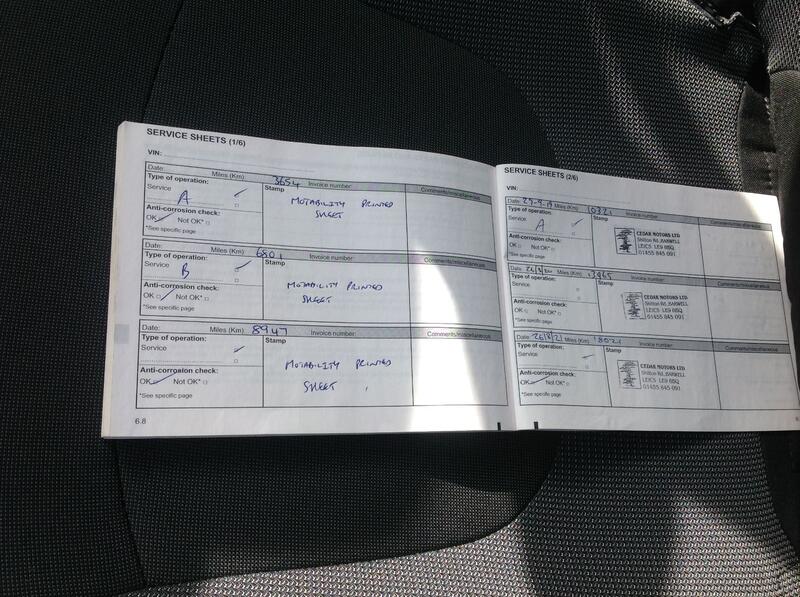 SERVICE SHEETS (1/6)
VIN:
Date: Miles (Km) 3654 Invoice number: Comments/miscellaneous
Type of operation: Stamp
Service
A
MOTABILITY PRINTED
SHEET
Anti-corrosion check:
OK Not OK*
*See specific page
Date: Miles (Km) 6801 Invoice number: Comments/miscellaneous
Type of operation: Stamp
Service
B
MOTABILITY PRINTED
SHEET
Anti-corrosion check:
OK Not OK*
*See specific page
Date: Miles (Km) 8947 Invoice number: Comments/miscellaneous
Type of operation: Stamp
Service
MOTABILITY PRINTED
SHEET
Anti-corrosion check:
OK Not OK*
*See specific page
6.8
SERVICE SHEETS (2/6)
VIN:
Date: Miles (Km) 10321 Invoice number: Comments/miscellaneous
Type of operation: Stamp
Service
A
CEDAR MOTORS LTD
Shilton Rd, BARWELL
LEICS LE9 8BQ
01455 845 091
Anti-corrosion check:
OK Not OK*
*See specific page
Date: Miles (Km) Invoice number: Comments/miscellaneous
Type of operation: Stamp
Service
CEDAR MOTORS LTD
Shilton Rd, BARWELL
LEICS LE9 8BQ
01455 845 091
Anti-corrosion check:
OK Not OK*
*See specific page
Date: 26/8/21 Miles (Km) 18021 Invoice number: Comments/miscellaneous
Type of operation: Stamp
Service
CEDAR MOTORS LTD
Shilton Rd, BARWELL
LEICS LE9 8BQ
01455 845 091
Anti-corrosion check:
OK Not OK*
*See specific page